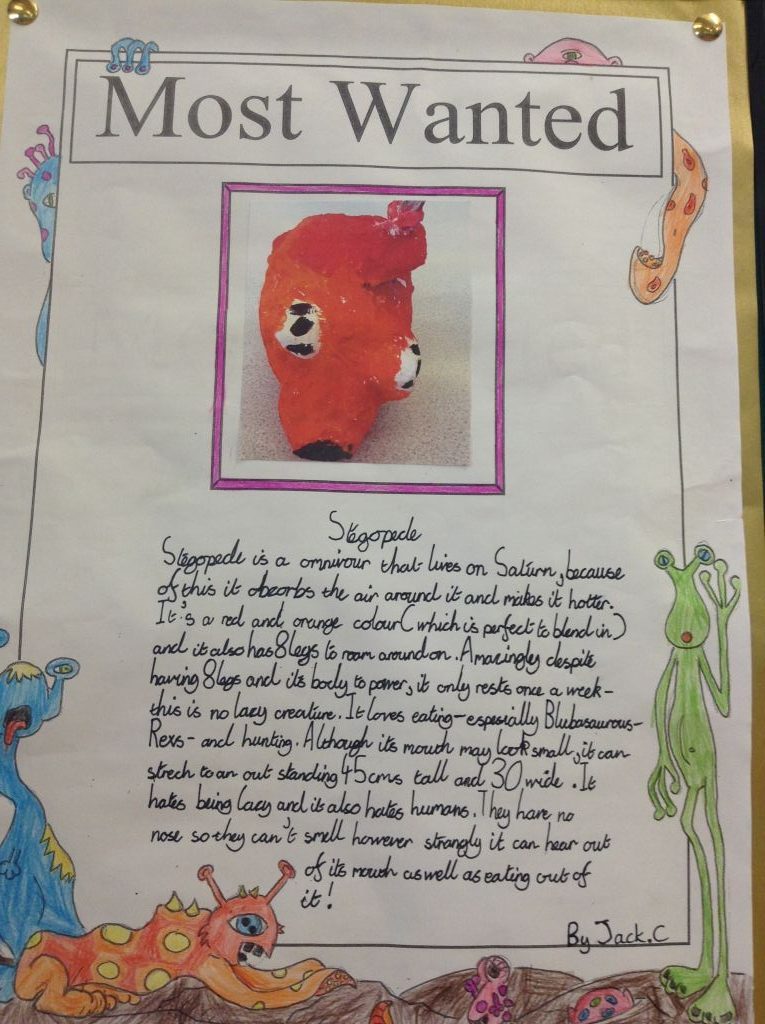 Most Wanted
Stegopede
Stegopede is a omnivour that lives on Saturn, because
of this it absorbs the air around it and makes it hotter.
It's a red and orange colour (which is perfect to blend in)
and it also has 8 legs to roam around on. Amazingly despite
having 8 legs and its body to power, it only rests once a week-
this is no lazy creature. It loves eating-especially Blubasaurous-
Rexs- and hunting. Although its mouth may look small, it can
strech to an out standing 45cms tall and 30 wide. It
hates being lazy and it also hates humans. They have no
nose so they can't smell however strangly it can hear out
of its mouth as well as eating out of
it!
By Jack.C